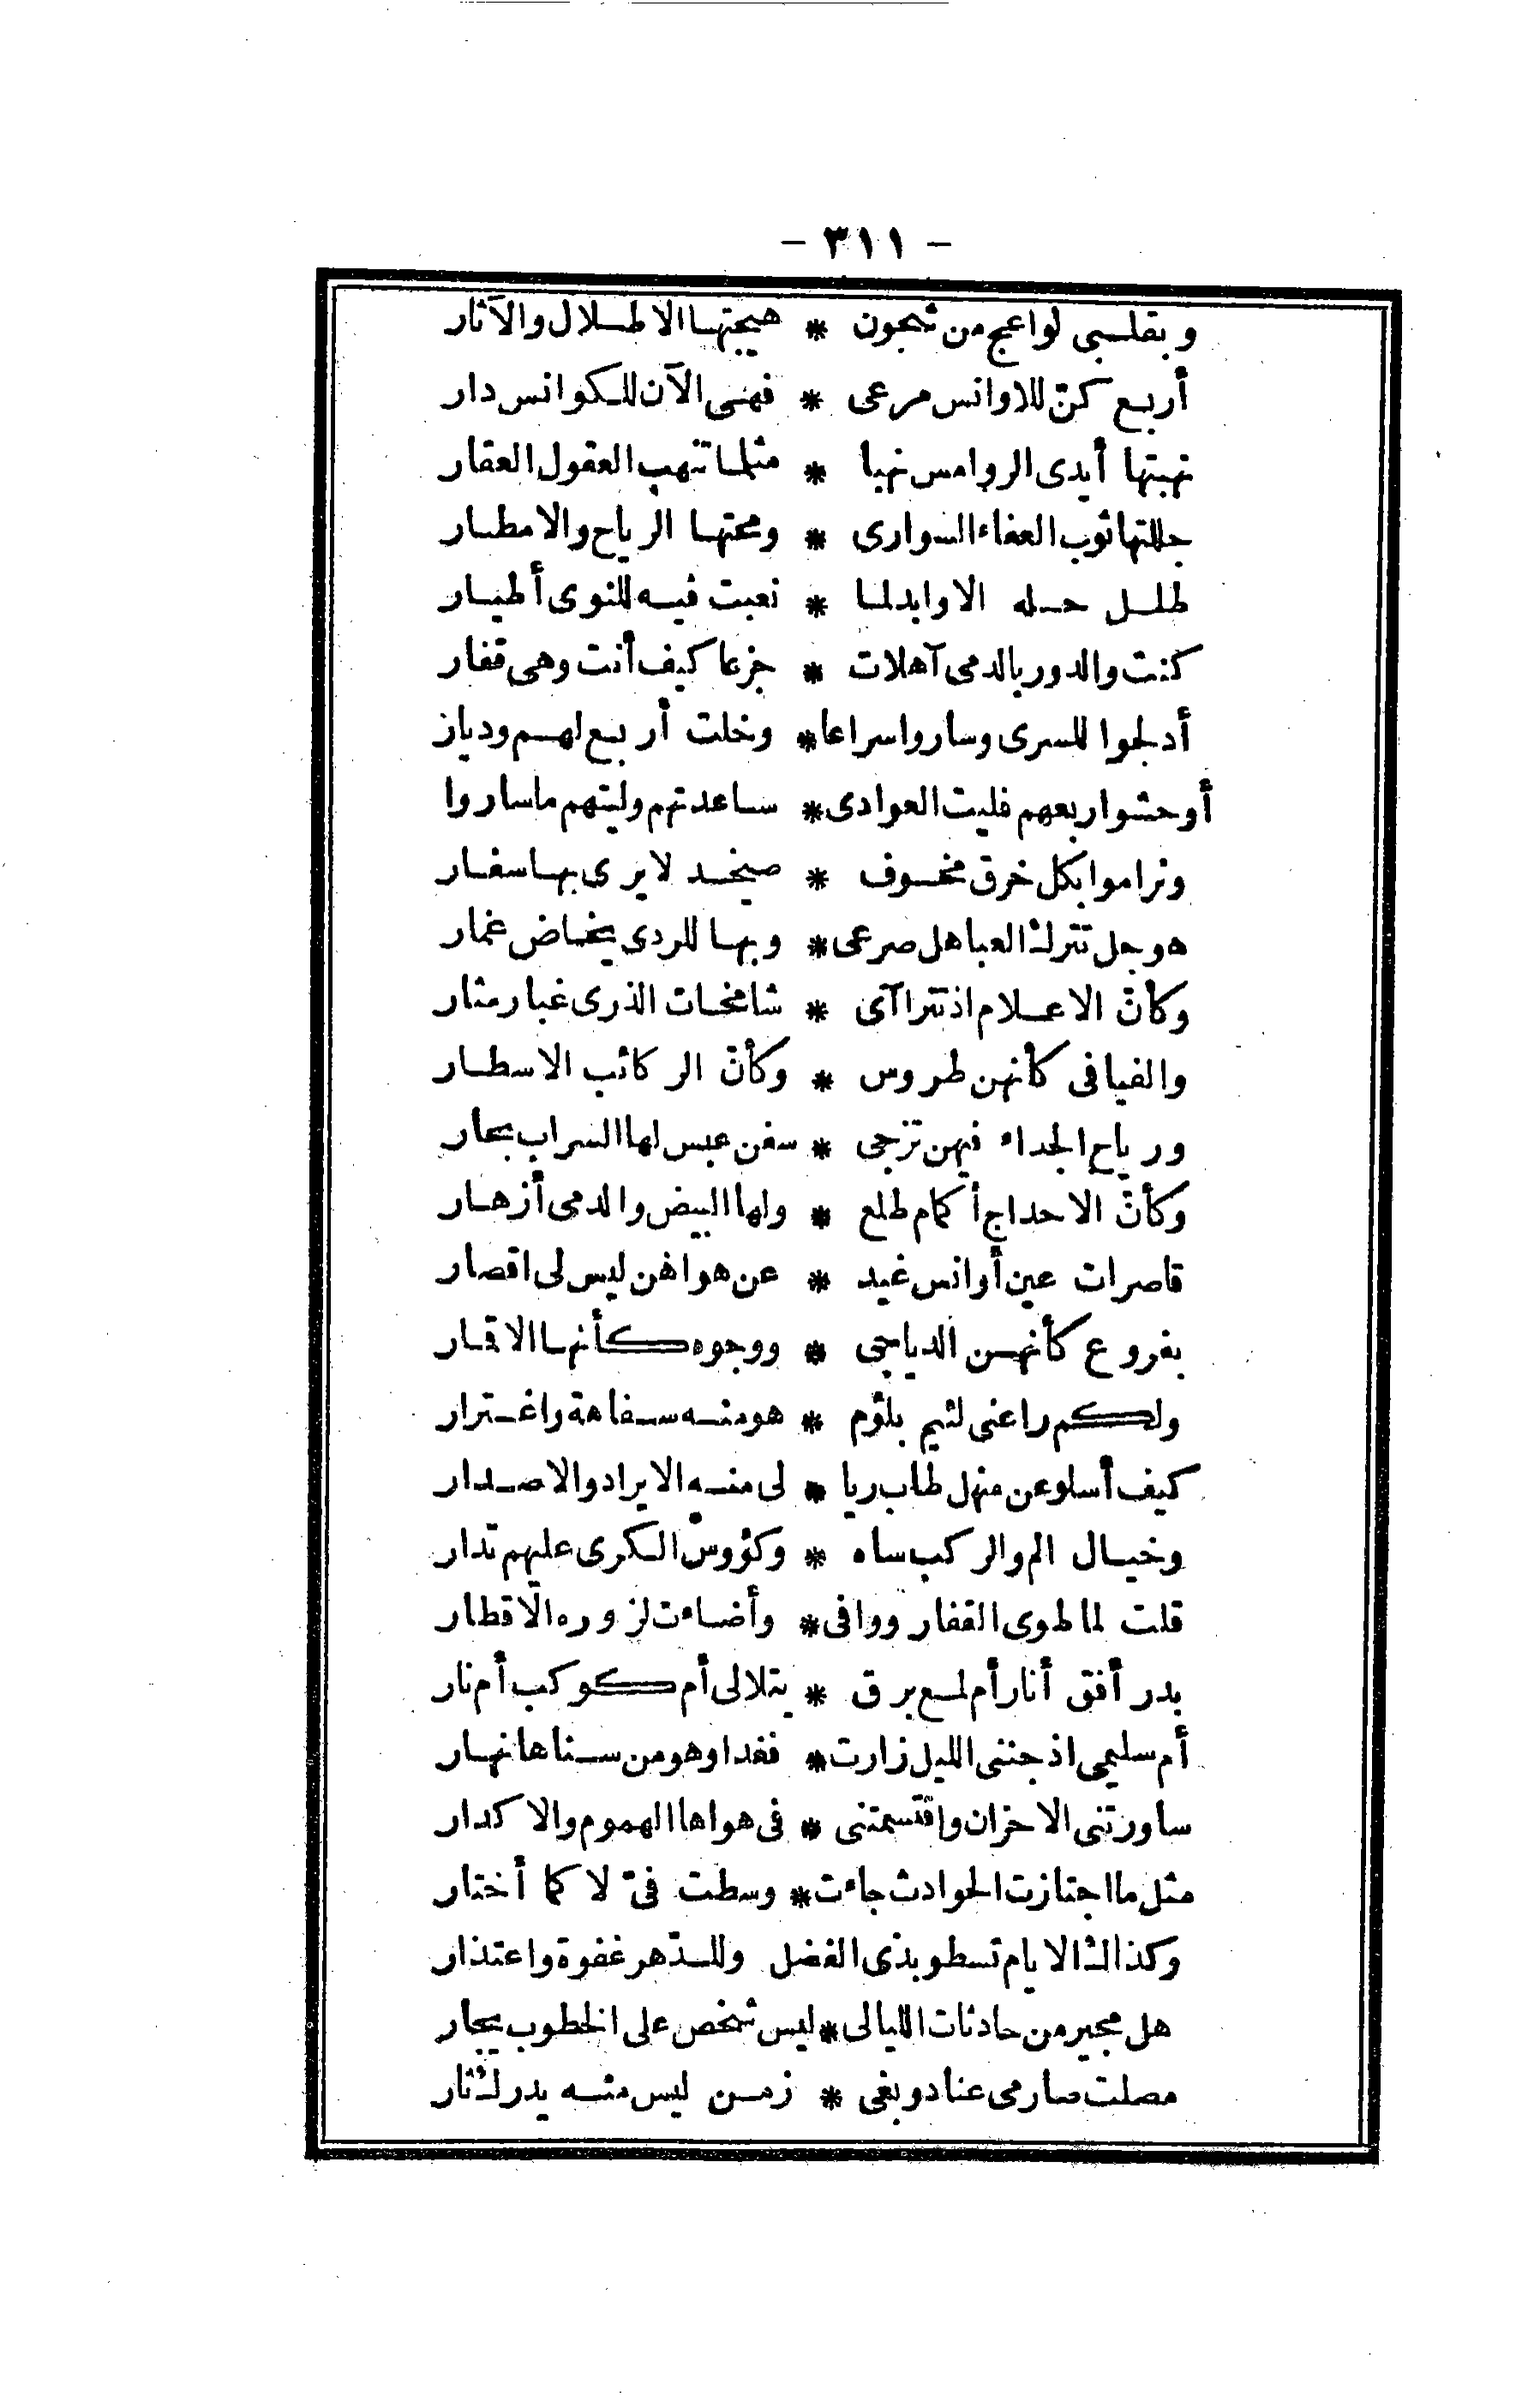 - ٣١١ -
وبقلبى لواعج من شجون * هيجتها الاطلال والآثار
أربع كنّ للاوانس مرعى * فهى الآن للكوانس دار
نهبتها أيدى الروامس نهبا * مثلما تنهب العقول العقار
جللتها ثوب العفاء السوارى * ومحتها الرياح والامطار
طلل حله الاوابد لما * نعبت فيه للنوى أطيار
كنت والدور بالدمى آهلات * جزعا كيف أنت وهى قفار
أدلجوا للسرى وساروا سراعا * وخلت أربع لهم وديار
أوحشوا ربعهم فليت العوادى * ساعدتهم وليتهم ماساروا
وتراموا بكل خرق مخوف * صيخد لايرى بها سفار
هوجل تترك العباهل صرعى * وبها للردى يخاض غمار
وكأنّ الاعلام اذ تتراآى * شامخات الذرى غبار مثار
والفيافى كأنهن طروس * وكأنّ الركائب الاسطار
ورياح الحداء فيهن تزجى * سفن عيس لها السراب بحار
وكأنّ الاحداج أكمام طلع * ولها البيض والدمى أزهار
قاصرات عين أوانس غيد * عن هواهن ليس لى اقصار
بفروع كأنهن الدياجى * ووجوه كأنها الاقمار
ولكم راعنى لئيم بلؤم * هو منه سفاهة واغترار
كيف أسلو عن منهل طاب ريا * لى منه الايراد والاصدار
وخيال الم والركب ساه * وكؤوس الكرى عليهم تدار
قلت لما طوى القفار ووافى * وأضاءت لزوره الاقطار
بدر أفق أنار أم لمع برق * يتلالى أم كوكب أم نار
أم سليمى اذ جننى الليل زارت * فغدا وهو من سناها نهار
ساورتنى الاحزان واقتسمتنى * فى هواها الهموم والاكدار
مثل ما اجتازت الحوادث جاءت * وسطت فىّ لا كما أختار
وكذاك الايام تسطو بذى الفضل وللدّهر غفوة واعتذار
هل مجير من حادثات الليالى * ليس شخص على الخطوب يجار
مصلت صارمى عناد وبغى * زمن ليس منه يدرك ثار